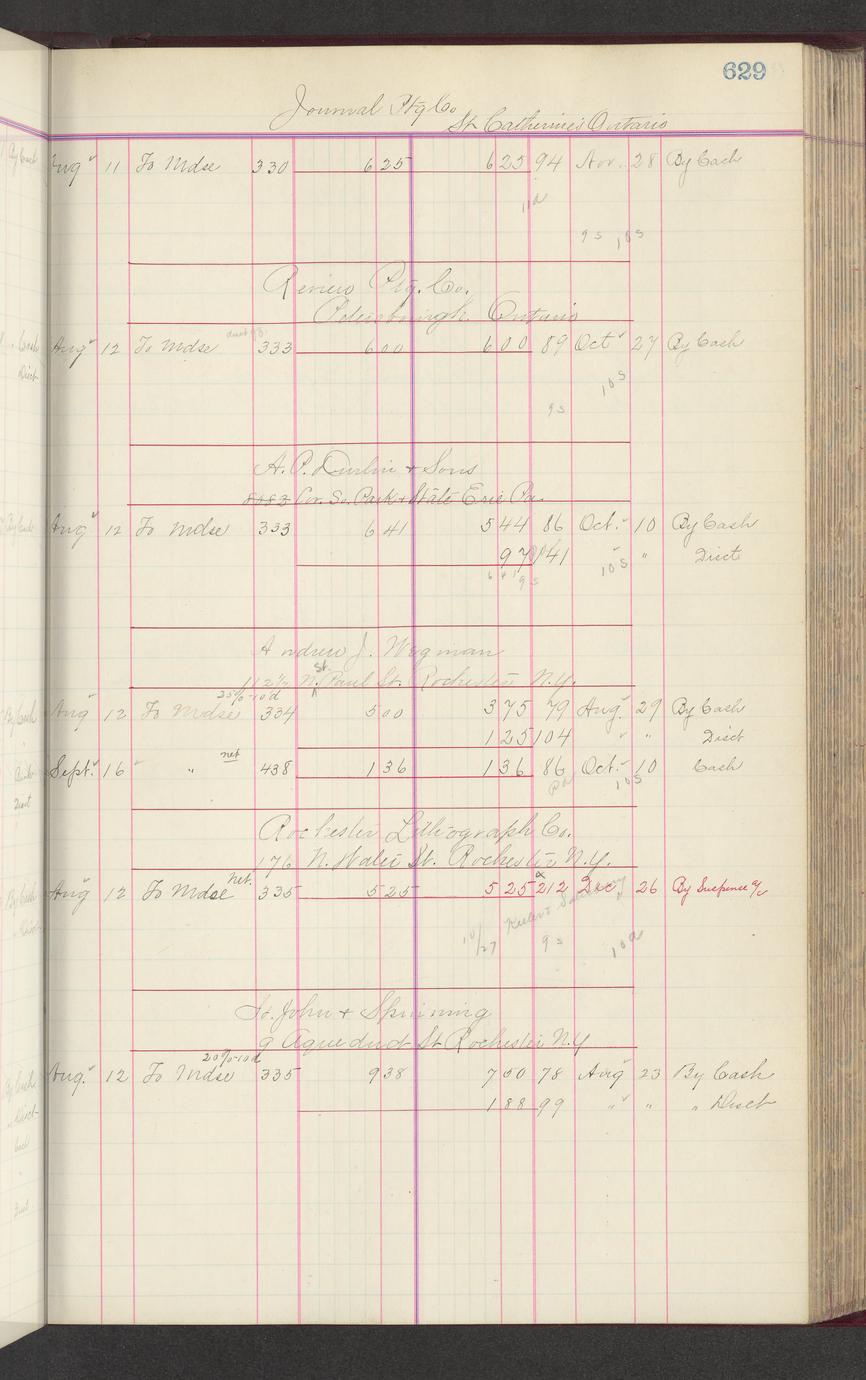 629
Journal Ptg Co
St. Catherines Ontario
Aug 11 To Mdse 330 625 625 94 Nov. 28 By Cash
9 s 10 s
Review Ptg. Co.
Peterborough. Ontario
Aug 12 To Mdse 333 600 600 89 Oct 27 By Cash
10 s
9 s
A. P. Durlin + Sons
Cor. So. Park + State Erie Pa.
Aug 12 To Mdse 333 641 544 86 Oct. 10 By Cash
97 141 " " Disct
641 9 s 10 s
Andrew J. Wegman
112½ N. St. Paul St. Rochester N.Y.
25%-10d
Aug 12 To Mdse 334 500 375 79 Aug. 29 By Cash
125 104 " " Disct
net
Sept. 16 " " 438 136 136 86 Oct. 10 Cash
Pd 10 s
Rochester Lithograph Co.
176 N. Water St. Rochester N.Y.
net.
Aug 12 To Mdse 335 525 525 212 Dec 26 By Suspense a/c
10/27 9 s 10 a
St. John + Spinning
9 Aqueduct St Rochester N.Y
20%-10d
Aug. 12 To Mdse 335 938 750 78 Aug 23 By Cash
188 99 " " " Disct